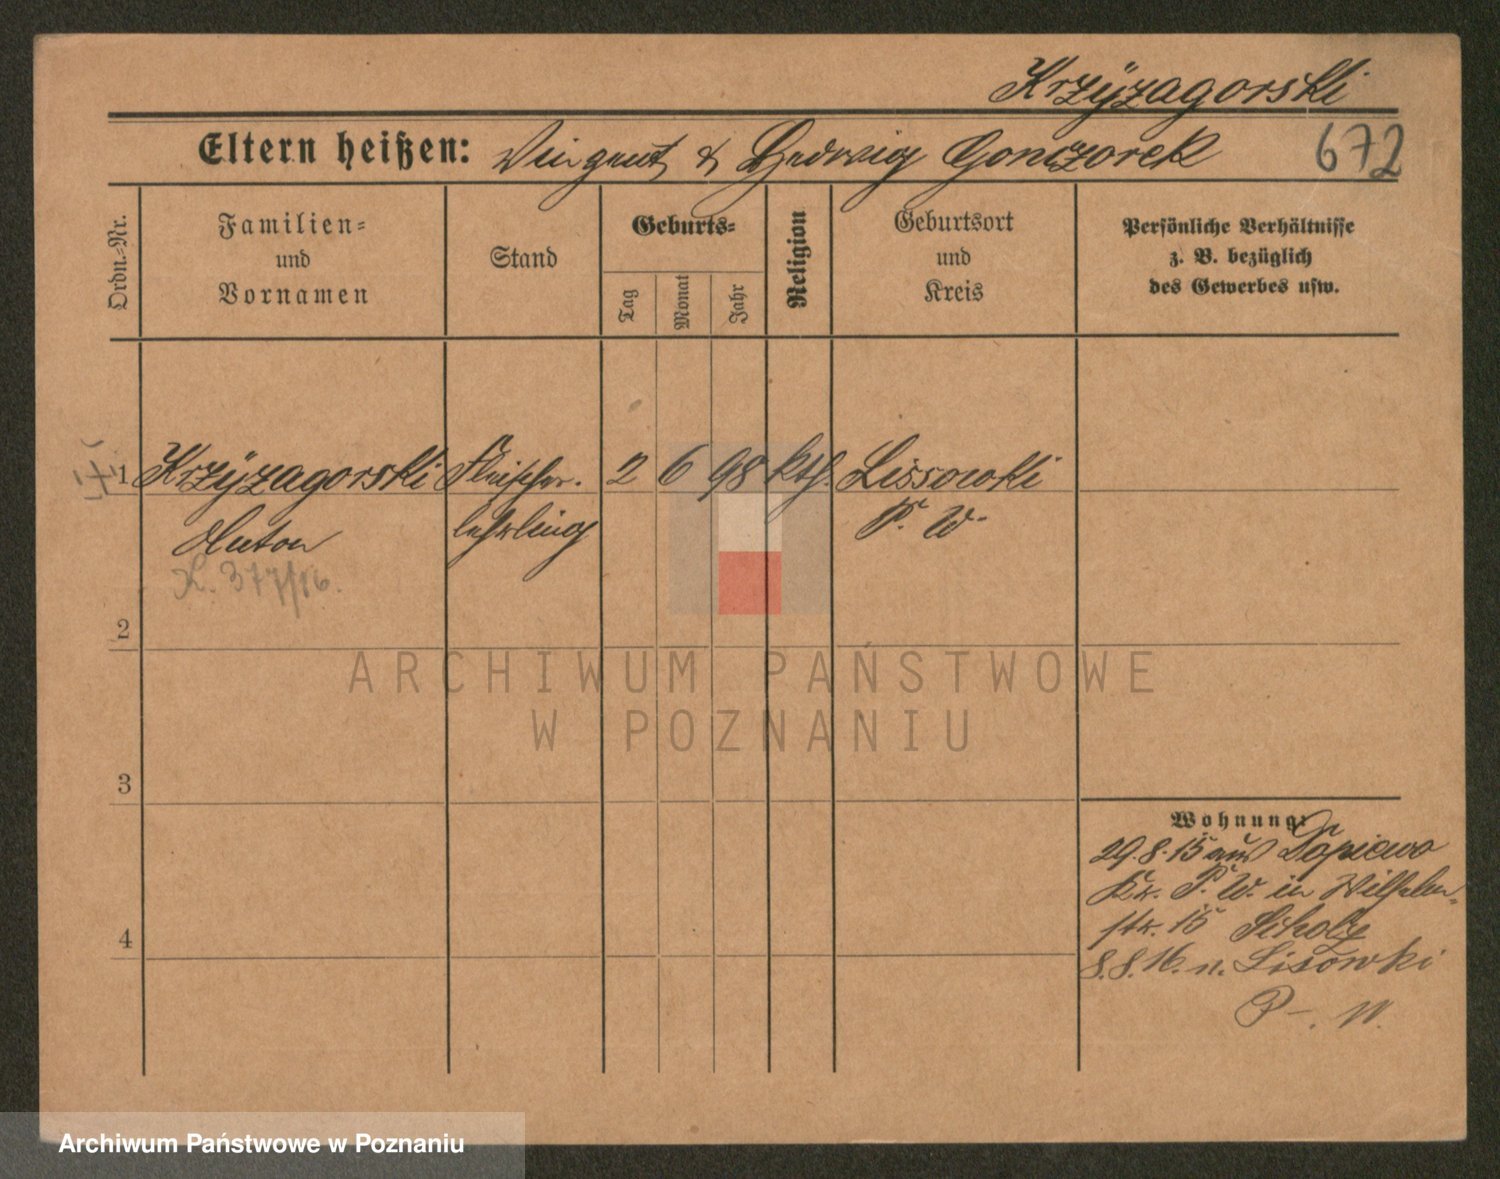 Krzÿzagorski
Eltern heißen: Vinzent & Hedwig Gonczorek 672
Ordn.-Nr.
Familien=
und
Vornamen
Stand
Geburts=
Tag
Monat
Jahr
Religion
Geburtsort
und
Kreis
Persönliche Verhältnisse
z. B. bezüglich
des Gewerbes usw.
1 Krzÿzagorski Fleischer- 2 6 98 kth. Lissowki
Anton lehrling P. W.
K. 377/16.
2
ARCHIWUM PAŃSTWOWE
W POZNANIU
3
Wohnung:
29.8.15 aus Dopiewo
Kr. P. W. in Wilhelm-
str. 15 Scholz
4
8.8.16. n. Lisowki
P. W.
Archiwum Państwowe w Poznaniu